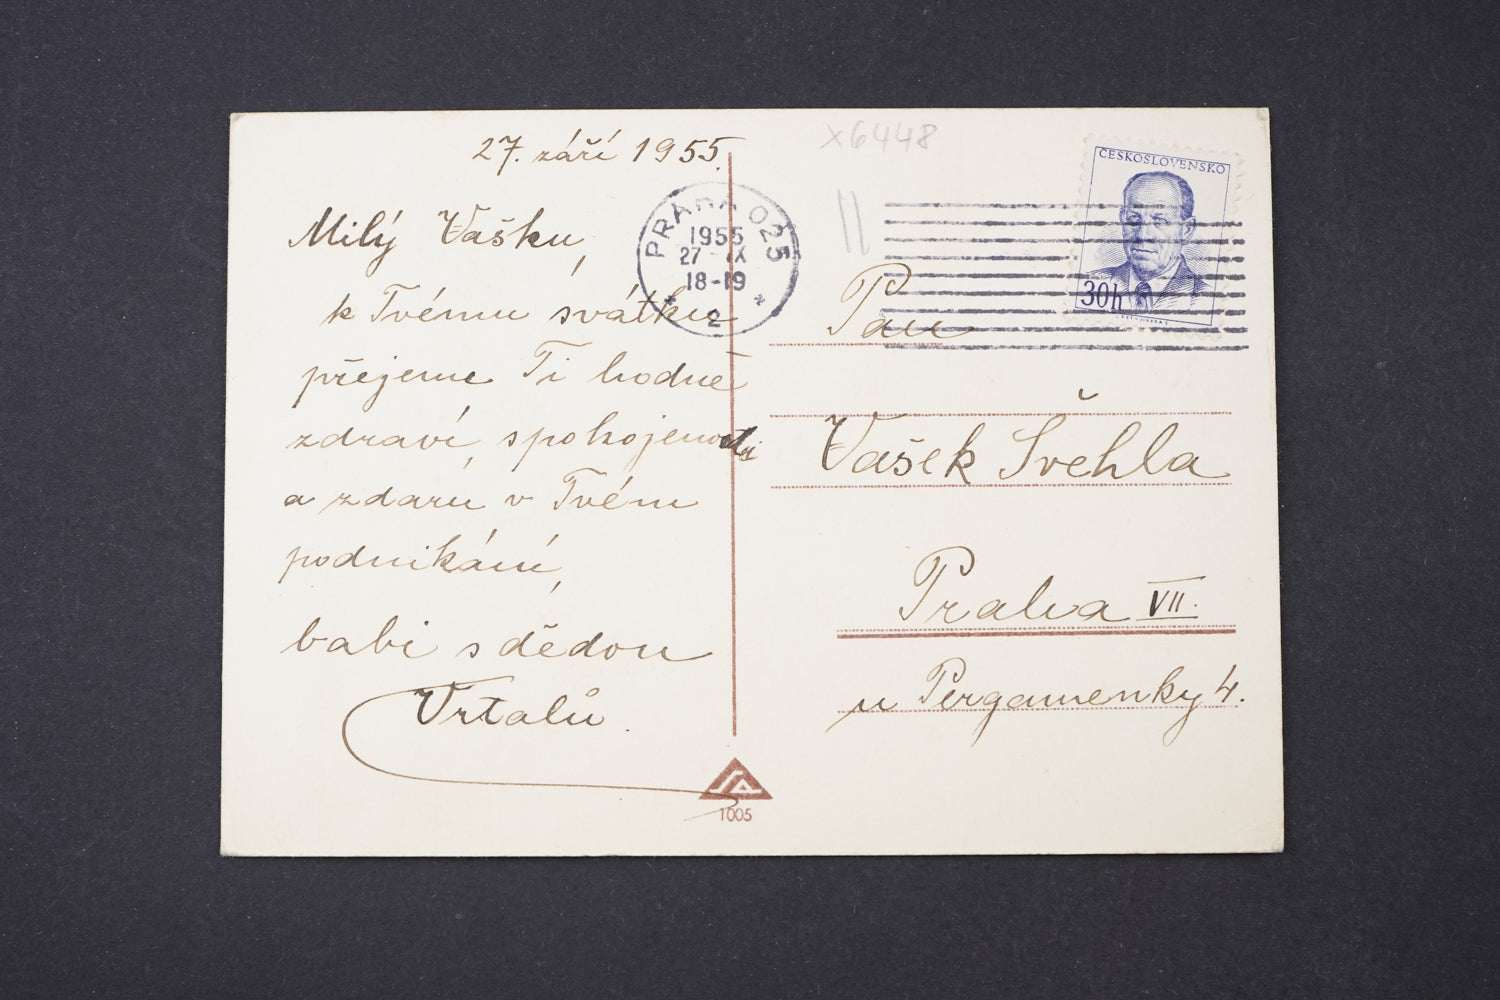 27. září 1955.
Milý Vašku,
k Tvému svátku
přejeme Ti hodně
zdraví, spokojenosti
a zdaru v Tvém
podnikání,
babi s dědou
Vrtalů.
x6448
PRAHA 025
1955
27-IX
18-19
2
ČESKOSLOVENSKO
30h
Pan
Vašek Švehla
Praha VII.
u Pergamenky 4.
1005